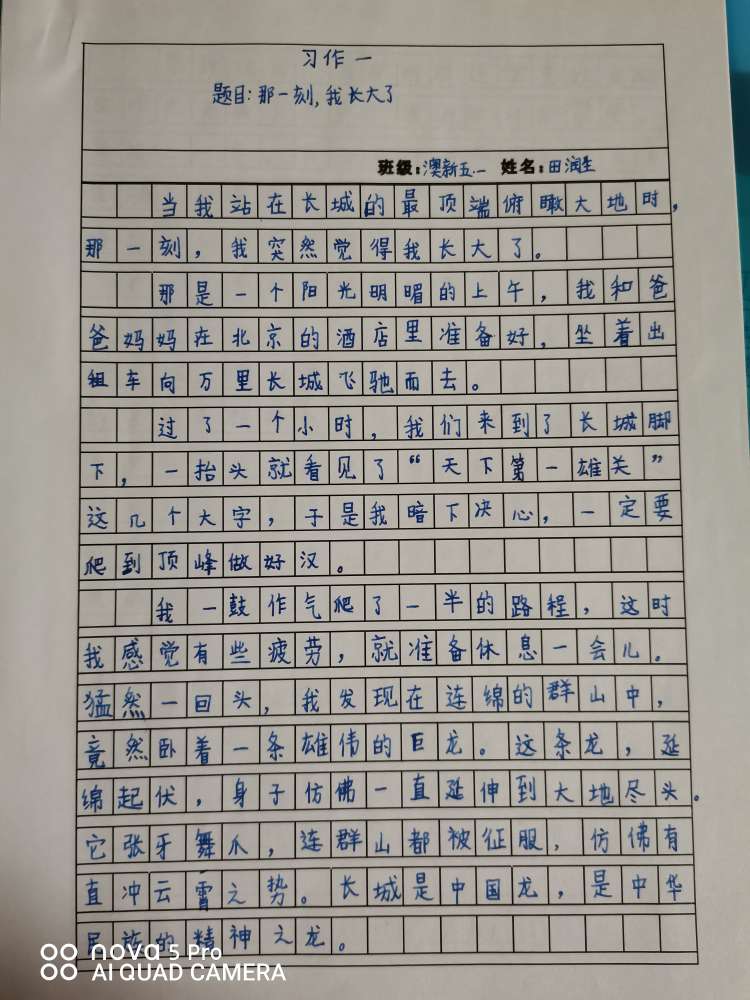 习作一
题目:那一刻,我长大了
班级:澳新五.一 姓名:田润生
当我站在长城的最顶端俯瞰大地时,
那一刻,我突然觉得我长大了。
那是一个阳光明媚的上午,我和爸
爸妈妈在北京的酒店里准备好,坐着出
租车向万里长城飞驰而去。
过了一个小时,我们来到了长城脚
下,一抬头就看见了“天下第一雄关”
这几个大字,于是我暗下决心,一定要
爬到顶峰做好汉。
我一鼓作气爬了一半的路程,这时
我感觉有些疲劳,就准备休息一会儿。
猛然一回头,我发现在连绵的群山中,
竟然卧着一条雄伟的巨龙。这条龙,延
绵起伏,身子仿佛一直延伸到大地尽头。
它张牙舞爪,连群山都被征服,仿佛有
直冲云霄之势。长城是中国龙,是中华
民族的精神之龙。
nova 5 Pro
AI QUAD CAMERA